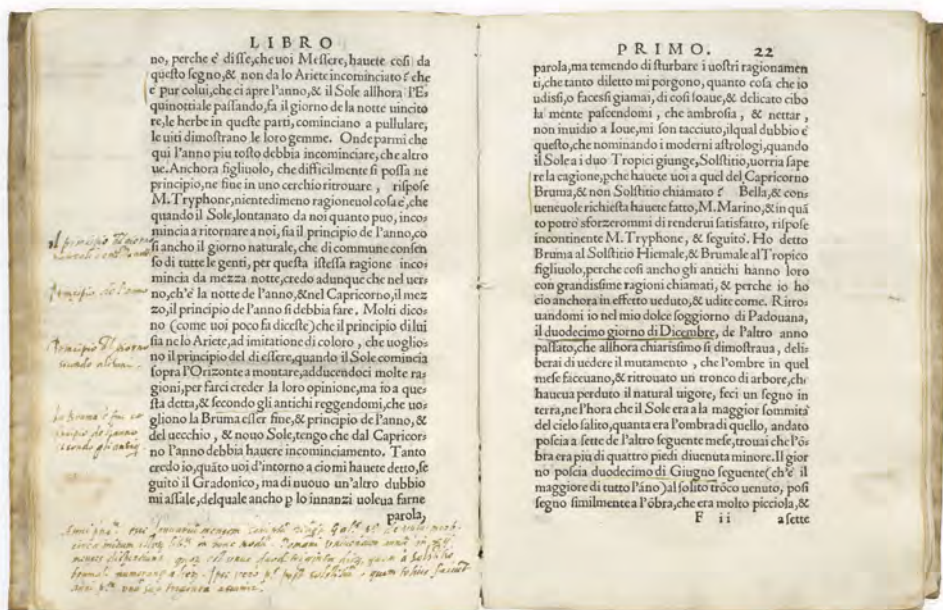 LIBRO
no, perche e' disse, che uoi Messere, hauete cosi da
questo segno, & non da lo Ariete incominciato? che
e' pur colui, che ci apre l'anno, & il Sole allhora l'E-
quinottiale passando, fa il giorno de la notte uincito
re, le herbe in queste parti, cominciano a pullulare,
le uiti dimostrano le loro gemme. Onde parmi che
qui l'anno piu tosto debbia incominciare, che altro
ue. Anchora figliuolo, che difficilmente si possa ne
principio, ne fine in uno cerchio ritrouare, rispose
M. Tryphone, nientedimeno ragioneuol cosa e', che
quando il Sole, lontanato da noi quanto puo, inco-
mincia a ritornare a noi, sia il principio de l'anno, co
si ancho il giorno naturale, che di commune consen
so di tutte le genti, per questa istessa ragione inco-
mincia da mezza notte, credo adunque che nel uer-
no, ch'e' la notte de l'anno, & nel Capricorno, il mez
zo, il principio de l'anno si debba fare. Molti dico-
no (come uoi poco fa diceste) che il principio di lui
sia ne lo Ariete, ad imitatione di coloro, che uoglio-
no il principio del di essere, quando il Sole comincia
sopra l'Orizonte a montare, adducendoci molte ra-
gioni, per farci creder la loro opinione, ma io a que-
sta detta, & secondo gli antichi reggendomi, che uo-
gliono la Bruma esser fine, & principio de l'anno, &
del uecchio, & nouo Sole, tengo che dal Capricor-
no l'anno debbia hauere incominciamento. Tanto
credo io, quāto uoi d'intorno a cio mi hauete detto, se
guito il Gradonico, ma di nuouo un'altro dubbio
mi assale, delquale ancho p lo innanzi uoleua farne
parola,
principio de l'anno
Principio del giorno
secondo alcuni
La Bruma è fine et
principio de l'anno
secondo gli antiq
PRIMO. 22
parola, ma temendo di sturbare i uostri ragionamen
ti, che tanto diletto mi porgono, quanto cosa che io
udissi, o facessi giamai, di cosi soaue, & delicato cibo
la mente pascendomi, che ambrosia, & nettar,
non inuidio a Ioue, mi son tacciuto, ilqual dubbio e'
questo, che nominando i moderni astrologi, quando
il Sole a i duo Tropici giunge, Solstitio, uorria sape
re la cagione, pche hauete uoi a quel del Capricorno
Bruma, & non Solstitio chiamato? Bella, & con-
ueneuole richiesta hauete fatto, M. Marino, & in quā
to potro' sforzerommi di renderui satisfatto, rispose
incontinente M. Tryphone, & seguito'. Ho detto
Bruma al Solstitio Hiemale, & Brumale al Tropico
figliuolo, perche cosi ancho gli antichi hanno loro
con grandissime ragioni chiamati, & perche io ho
cio anchora in effetto ueduto, & udite come. Ritro-
uandomi io nel mio dolce soggiorno di Padouana,
il duodecimo giorno di Dicembre, de l'altro anno
passato, che allhora chiarissimo si dimostraua, deli-
berai di uedere il mutamento, che l'ombre in quel
mese faceuano, & ritrouato un tronco di arbore, che
haueua perduto il natural uigore, feci un segno in
terra, ne l'hora che il Sole era a la maggior sommita'
del cielo salito, quanta era l'ombra di quello, andato
poscia a sette de l'altro seguente mese, trouai che l'ō-
bra era piu di quattro piedi diuenuta minore. Il gior
no poscia duodecimo di Giugno seguente (ch'e' il
maggiore di tutto l'āno) al solito trōco uenuto, posi
segno similmente a l'ōbra, che era molto picciola, &
F ii a sette